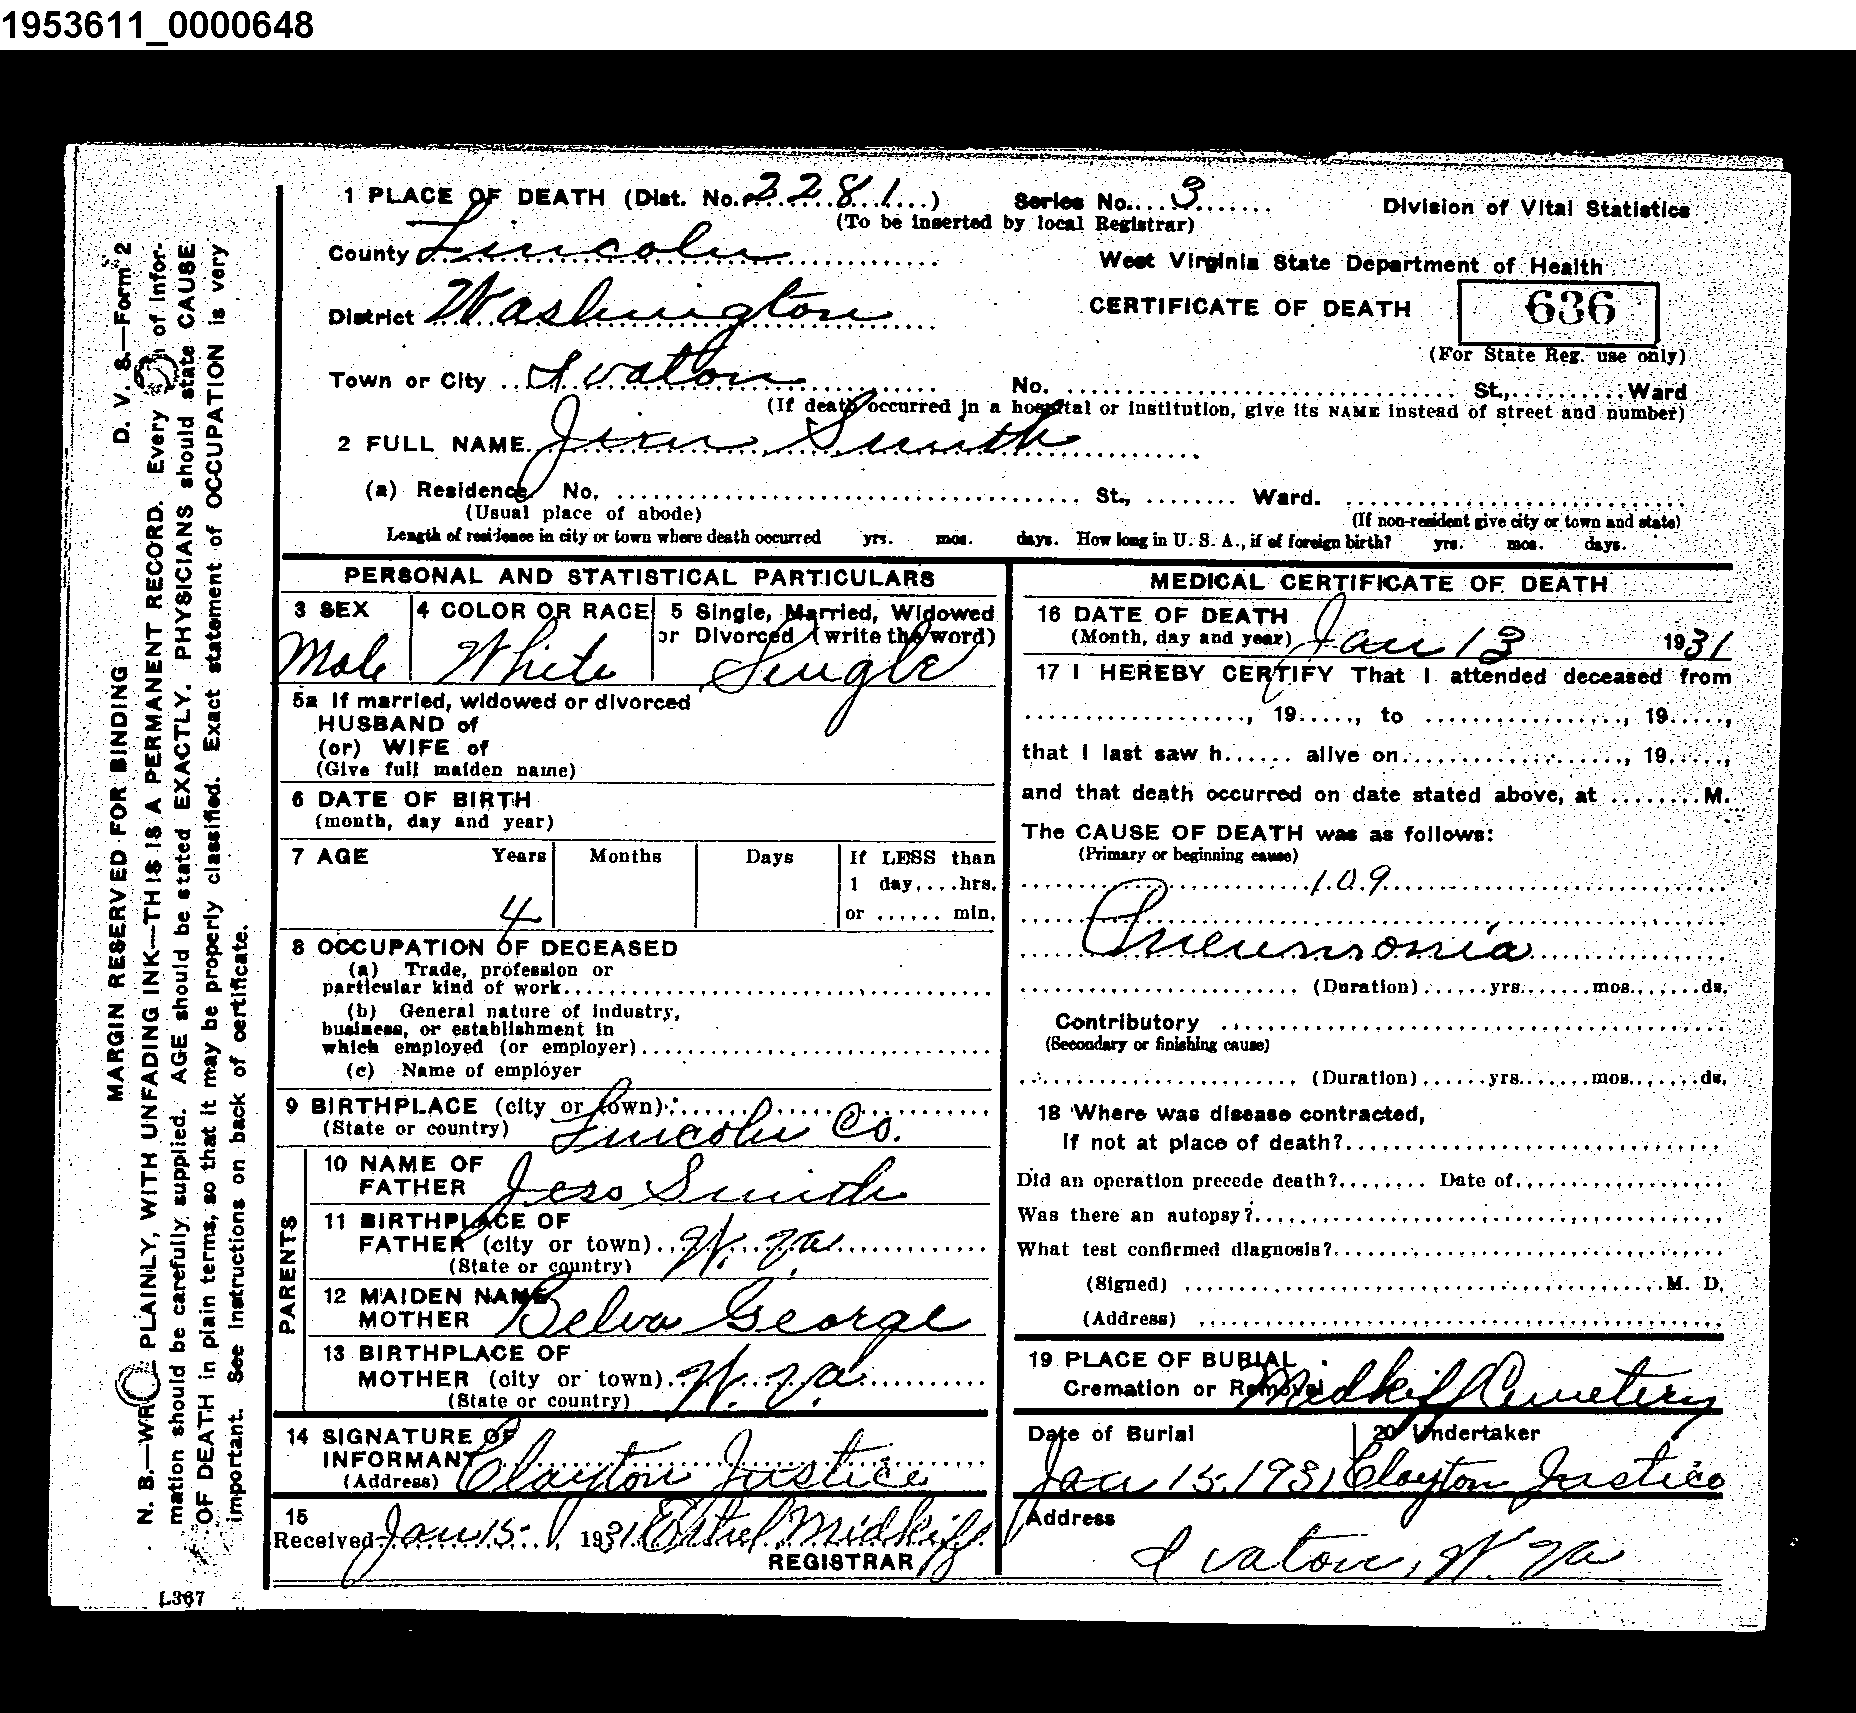 1953611_0000648
1 PLACE OF DEATH (Dist. No. 2281) Series No. 3 Division of Vital Statistics
(To be inserted by local Registrar)
County Lincoln West Virginia State Department of Health
District Washington CERTIFICATE OF DEATH 636
(For State Reg. use only)
Town or City Ivaton No. St., Ward
(If death occurred in a hospital or institution, give its NAME instead of street and number)
2 FULL NAME Jim Smith
(a) Residence No. St., Ward.
(Usual place of abode) (If non-resident give city or town and state)
Length of residence in city or town where death occurred yrs. mos. days. How long in U. S. A., if of foreign birth? yrs. mos. days.
PERSONAL AND STATISTICAL PARTICULARS
3 SEX 4 COLOR OR RACE 5 Single, Married, Widowed
or Divorced (write the word)
Male White Single
5a If married, widowed or divorced
HUSBAND of
(or) WIFE of
(Give full maiden name)
6 DATE OF BIRTH
(month, day and year)
7 AGE Years Months Days If LESS than
1 day,....hrs.
4 or ...... min.
8 OCCUPATION OF DECEASED
(a) Trade, profession or
particular kind of work
(b) General nature of industry,
business, or establishment in
which employed (or employer)
(c) Name of employer
9 BIRTHPLACE (city or town)
(State or country) Lincoln Co.
PARENTS
10 NAME OF
FATHER Jess Smith
11 BIRTHPLACE OF
FATHER (city or town) W. Va
(State or country)
12 MAIDEN NAME
MOTHER Belva George
13 BIRTHPLACE OF
MOTHER (city or town) W. Va.
(State or country)
14 SIGNATURE OF
INFORMANT Clayton Justice
(Address)
15
Received Jan 15 1931 Estel Midkiff
REGISTRAR
MEDICAL CERTIFICATE OF DEATH
16 DATE OF DEATH
(Month, day and year) Jan 13 1931
17 I HEREBY CERTIFY That I attended deceased from
, 19....., to , 19.....,
that I last saw h...... alive on , 19.....,
and that death occurred on date stated above, at ........M.
The CAUSE OF DEATH was as follows:
(Primary or beginning cause)
109
Pneumonia
(Duration)......yrs.......mos.......ds.
Contributory
(Secondary or finishing cause)
(Duration)......yrs.......mos.......ds.
18 Where was disease contracted,
if not at place of death?
Did an operation precede death?........ Date of
Was there an autopsy?
What test confirmed diagnosis?
(Signed) M. D.
(Address)
19 PLACE OF BURIAL
Cremation or Removal Midkiff Cemetery
Date of Burial 20 Undertaker
Jan 15. 1931 Clayton Justice
Address
Ivaton, W. Va
D. V. S.—Form 2
MARGIN RESERVED FOR BINDING
N. B.—WR PLAINLY, WITH UNFADING INK—THIS IS A PERMANENT RECORD. Every of infor-
mation should be carefully supplied. AGE should be stated EXACTLY. PHYSICIANS should state CAUSE
OF DEATH in plain terms, so that it may be properly classified. Exact statement of OCCUPATION is very
important. See instructions on back of certificate.
L367